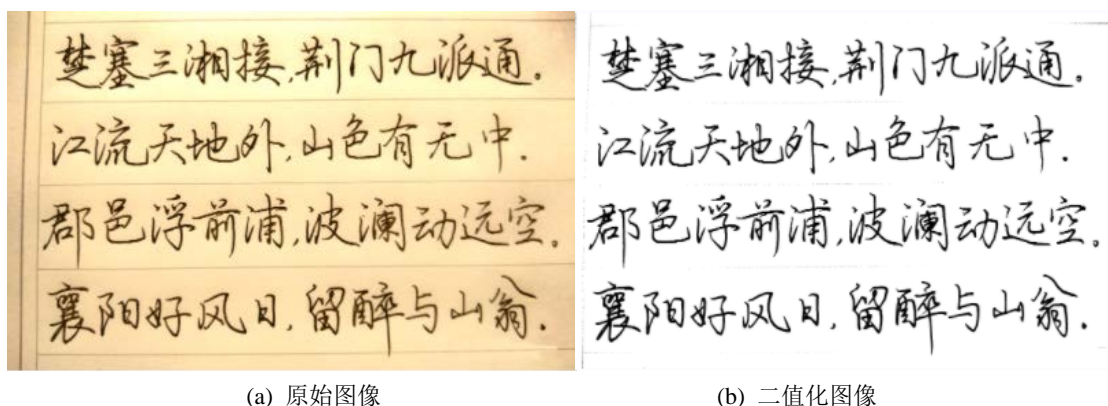 楚塞三湘接,荆门九派通。
江流天地外,山色有无中.
郡邑浮前浦,波澜动远空。
襄阳好风日,留醉与山翁.
(a) 原始图像
楚塞三湘接,荆门九派通。
江流天地外,山色有无中.
郡邑浮前浦,波澜动远空。
襄阳好风日,留醉与山翁.
(b) 二值化图像